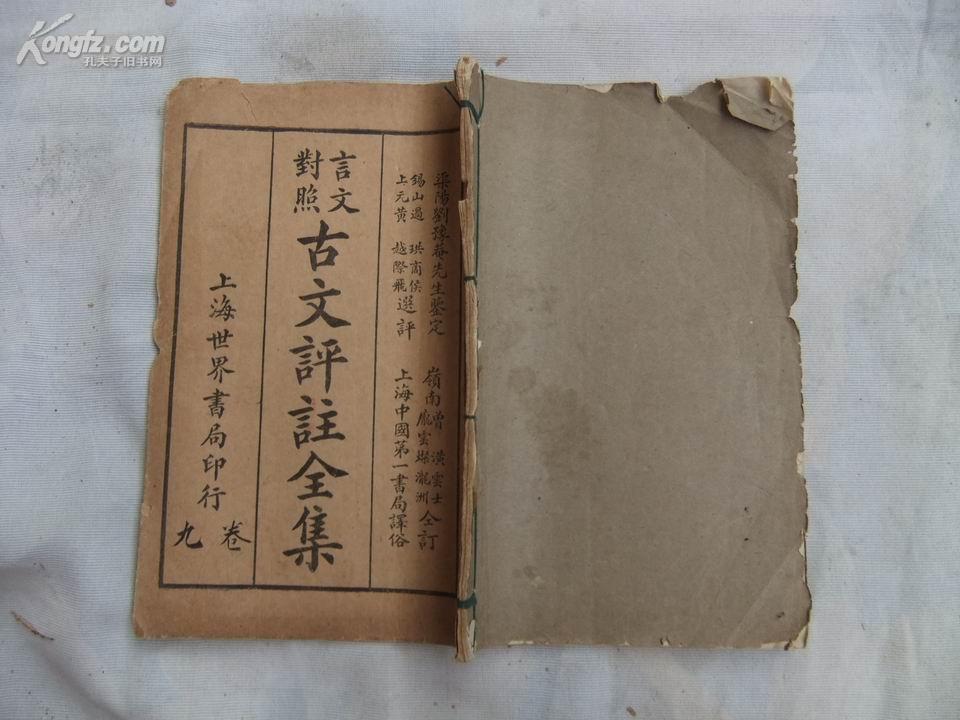 Kongfz.com
孔夫子旧书网
梁陽劉豫菴先生鉴定
錫山過 珙商侯
上元黄 越際飛
選評
嶺南曾 潢雲士
龐雲燦瀧洲
仝訂
上海中國第一書局譯俗
言文
對照
古文評註全集
上海世界書局印行
卷九